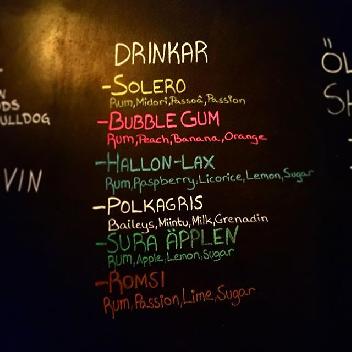 DRINKAR
-SOLERO
Rum, Midori, Passoã, Passion
-BUBBLEGUM
Rum, Peach, Banana, Orange
-HALLON-LAX
Rum, Raspberry, Licorice, Lemon, Sugar
-POLKAGRIS
Baileys, Mintu, Milk, Grenadin
-SURA ÄPPLEN
Rum, Apple, Lemon, Sugar
-ROMSI
Rum, Passion, Lime, Sugar
VIN